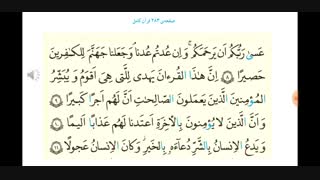 صفحه‌ی ۲۸۳ قرآن کامل
عَسَىٰ رَبُّكُم اَن يَرحَمَكُم ۚ وَ اِن عُدتُم عُدنا وَ جَعَلنا جَهَنَّمَ لِلكٰفِرينَ
حَصيرًا ﴿٨﴾ اِنَّ هٰذَا القُرءانَ يَهدى لِلَّتى هِىَ اَقوَمُ وَ يُبَشِّرُ
المُؤمِنينَ الَّذينَ يَعمَلونَ الصّالِحٰتِ اَنَّ لَهُم اَجرًا كَبيرًا ﴿٩﴾
وَ اَنَّ الَّذينَ لا يُؤمِنونَ بِالآخِرَةِ اَعتَدنا لَهُم عَذابًا اَليمًا ﴿١٠﴾
وَ يَدعُ الاِنسانُ بِالشَّرِّ دُعاءَهو بِالخَيرِ ۖ وَ كانَ الاِنسانُ عَجولًا ﴿١١﴾